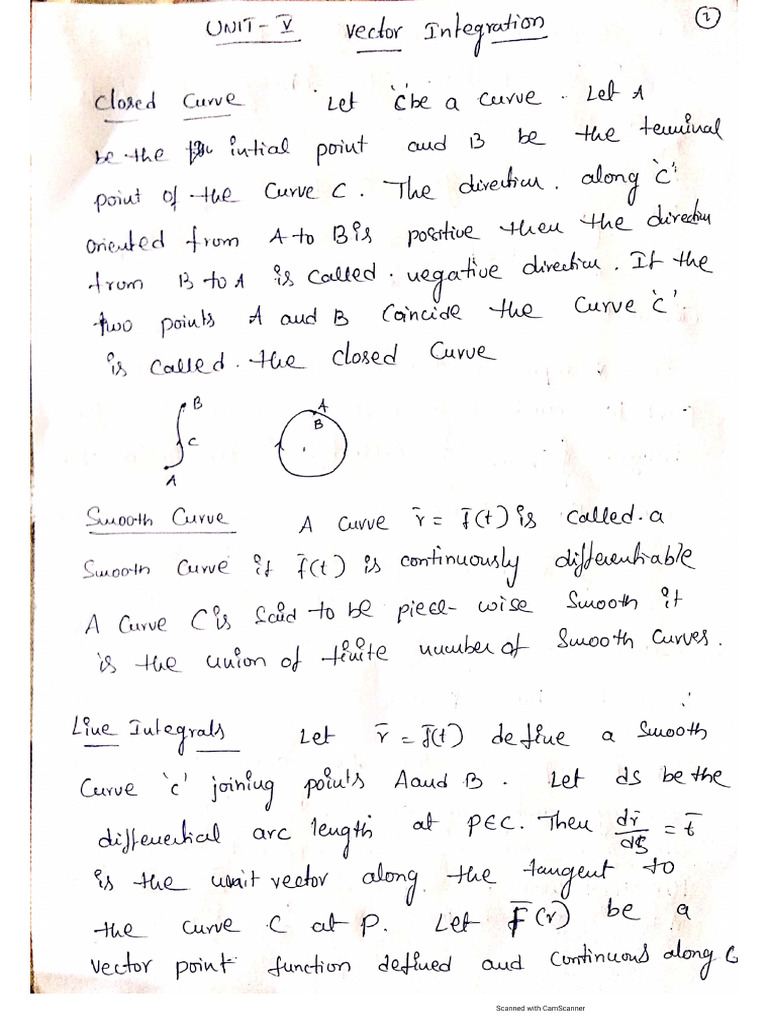 UNIT - V Vector Integration 2
Closed Curve Let 'c' be a curve. Let A
be the intial point and B be the teminal
point of the curve C. The direction along 'c'
oriented from A to B is positive then the direction
from B to A is called negative direction. If the
two points A and B Coincide the Curve 'c'
is called the closed Curve
B A
B
C
A
Smooth Curve A curve r̄ = f̄(t) is called a
Smooth Curve if f̄(t) is continuously differentiable
A curve C is said to be piece-wise smooth if
is the union of finite number of smooth curves.
Line Integrals Let r̄ = f̄(t) define a smooth
Curve 'c' joining points A and B. Let ds be the
differential arc length at P∈C. Then dr̄/ds = t̄
is the unit vector along the tangent to
the curve C at P. Let F̄(r̄) be a
vector point function defined and continuous along C
Scanned with CamScanner